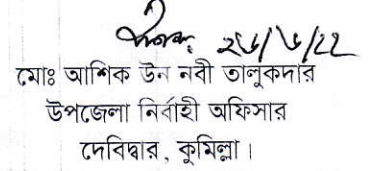 ২৬/৬/২২
মোঃ আশিক উন নবী তালুকদার
উপজেলা নির্বাহী অফিসার
দেবিদ্বার, কুমিল্লা।